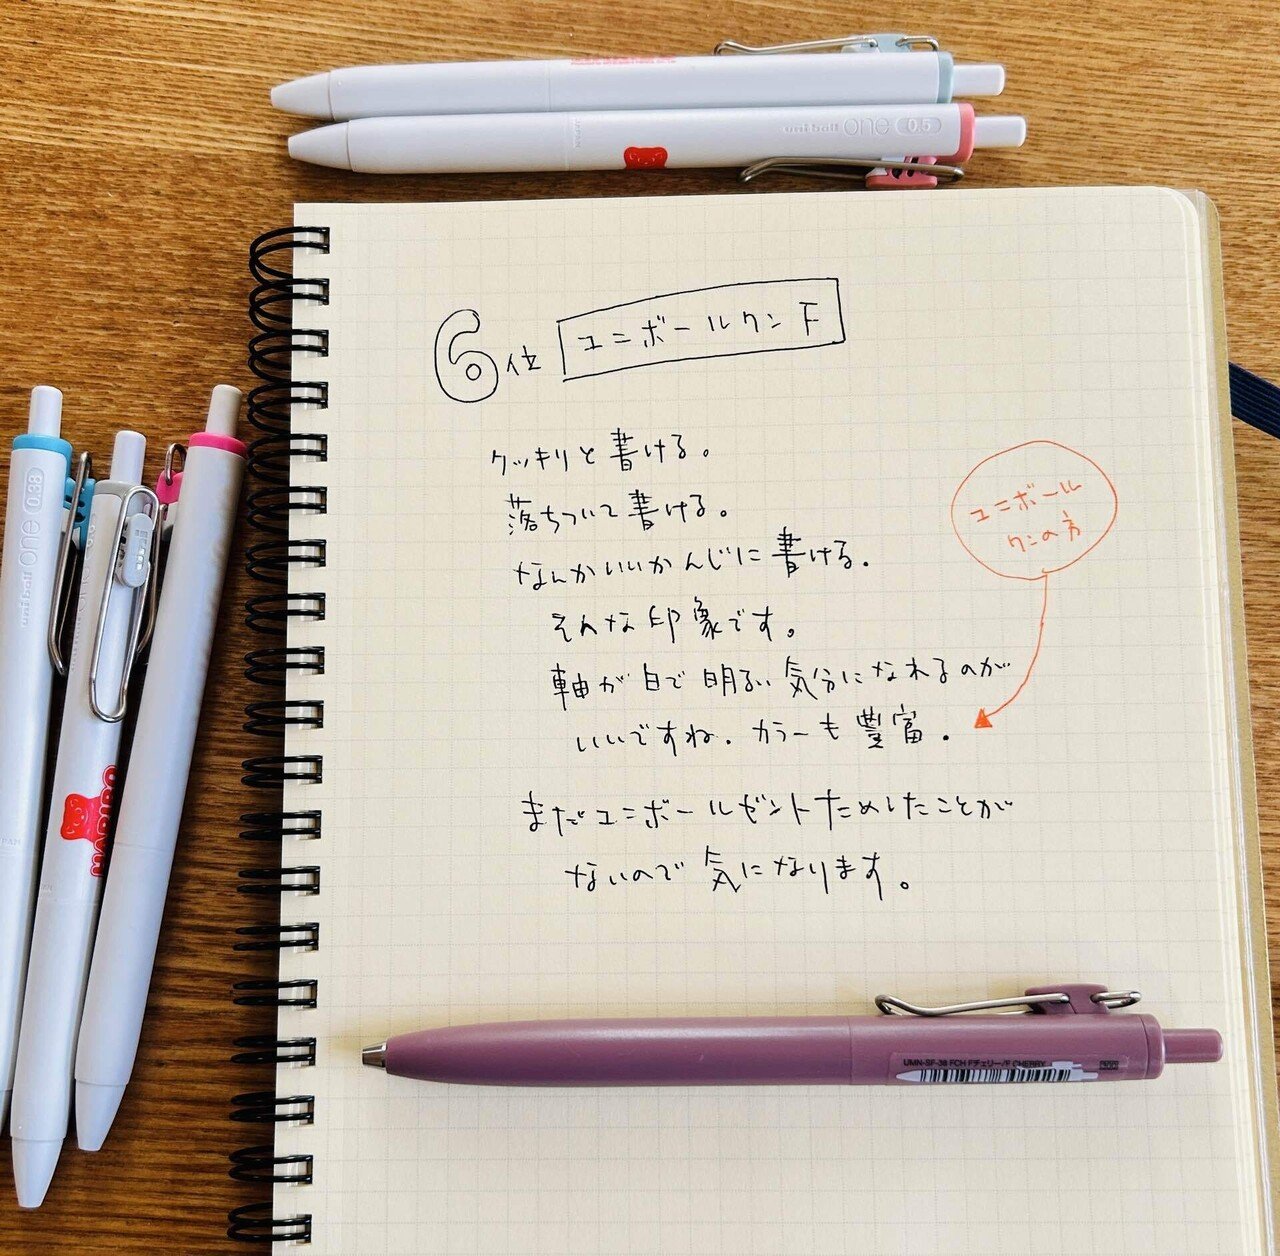 uni-ball one 0.5
JAPAN
6位 ユニボールワン F
クッキリと書ける。
落ちついて書ける。
なんかいいかんじに書ける。
そんな印象です。
軸が白で明るい気分になれるのが
いいですね。カラーも豊富。
ユニボール
ワンの方
まだユニボールゼントためしたことが
ないので気になります。
uni-ball one 0.38
UMN-SF-38 FCH Fチェリー/F CHERRY